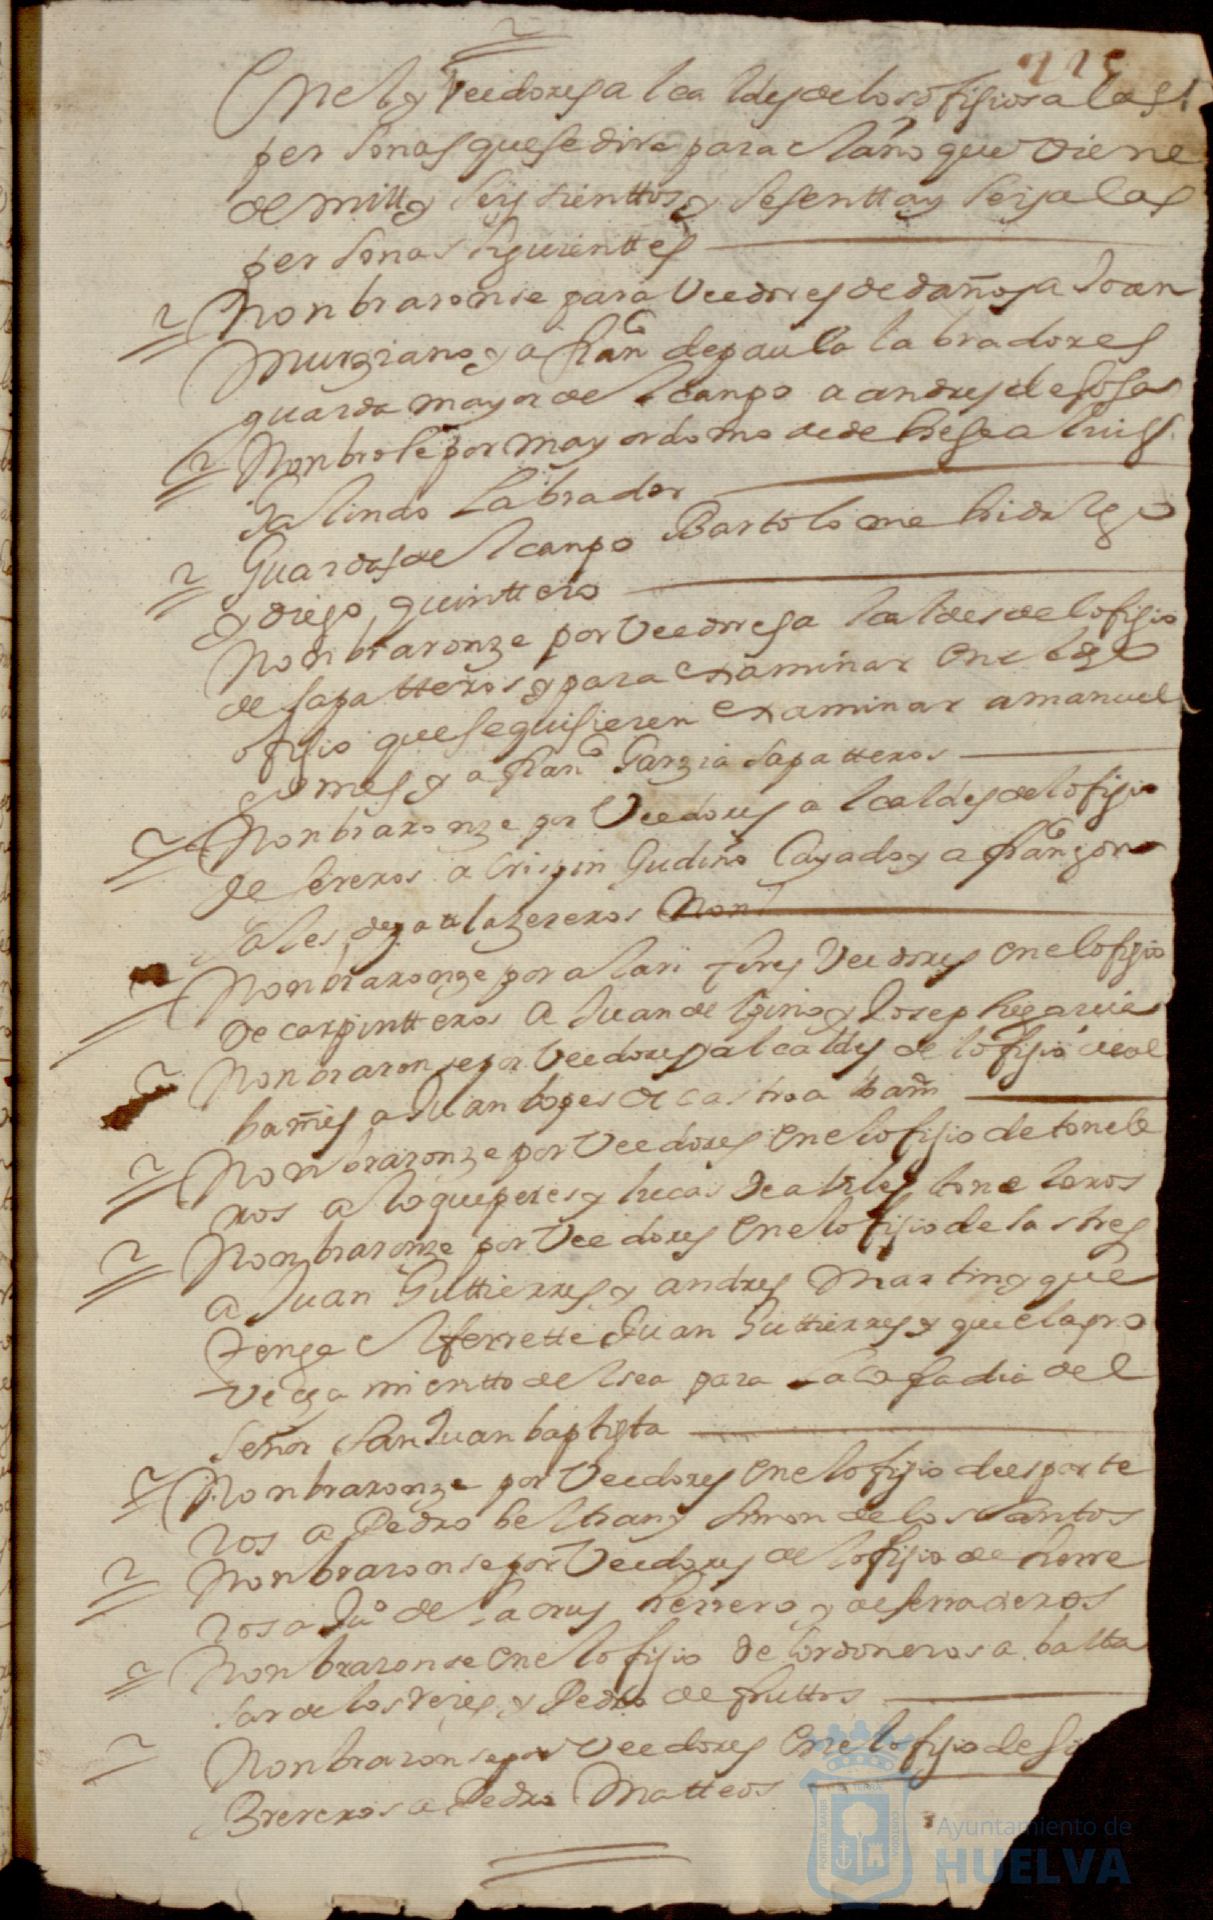 225
en el y Veedores alcaldes de los ofisios a las
personas que se dira para el año que viene
de mill y seissienttos y sesentta y seis a las
personas siguienttes
Nonbraronse para Veedores de daños a Joan
Murziano y a Fran^co de paula labradores
guarda mayor del canpo a andres de sosa
Nonbrose por mayordomo de dehesa a luis
Galindo Labrador
Guardas del canpo Bartolome hidalgo
y diego quinttero
Nonbraronze por Veedores alcaldes del ofisio
de sapatteros y para examinar en el dho
ofisio que se quisieren examinar a manuel
gomes y a Fran^co Garzia sapatteros
Nonbraronze por Veedores alcaldes del ofisio
de sereros a Crispin Gudiño Cayado y a Fran^co gon
sales de zereros Non
Nonbraronze por alarifes Veedores en el ofisio
de carpintteros a Juan de y Josep garcia
Nonbraronse por Veedores alcaldes del ofisio de al
bañies a Juan lopes de castro
Nonbraronze por Veedores en el ofisio de tonele
ros a roque peres y lucas de abiles toneleros
Nonbraronze por Veedores en el ofisio de sastres
a Juan Guttierres y andres Martin y que
tenga el ferrette Juan Guttierres y que el apro
vechamientto del sea para la cofadia del
Señor San Juan baptista
Nonbraronze por Veedores en el ofisio de esparte
ros a Pedro beltran y simon de los santos
Nonbraronse por Veedores del ofisio de herre
ros a Ju^o de la crus herrero y de serraderos
Nonbraronse en el ofisio de cordoneros a balta
sar de los reies y Pedro de fruttos
Nonbraronse por Veedores en el ofisio de so
Brereros a Pedro Matteos
PORTUS MARIS
ET TERRAE
CUSTODIA
Ayuntamiento de
HUELVA